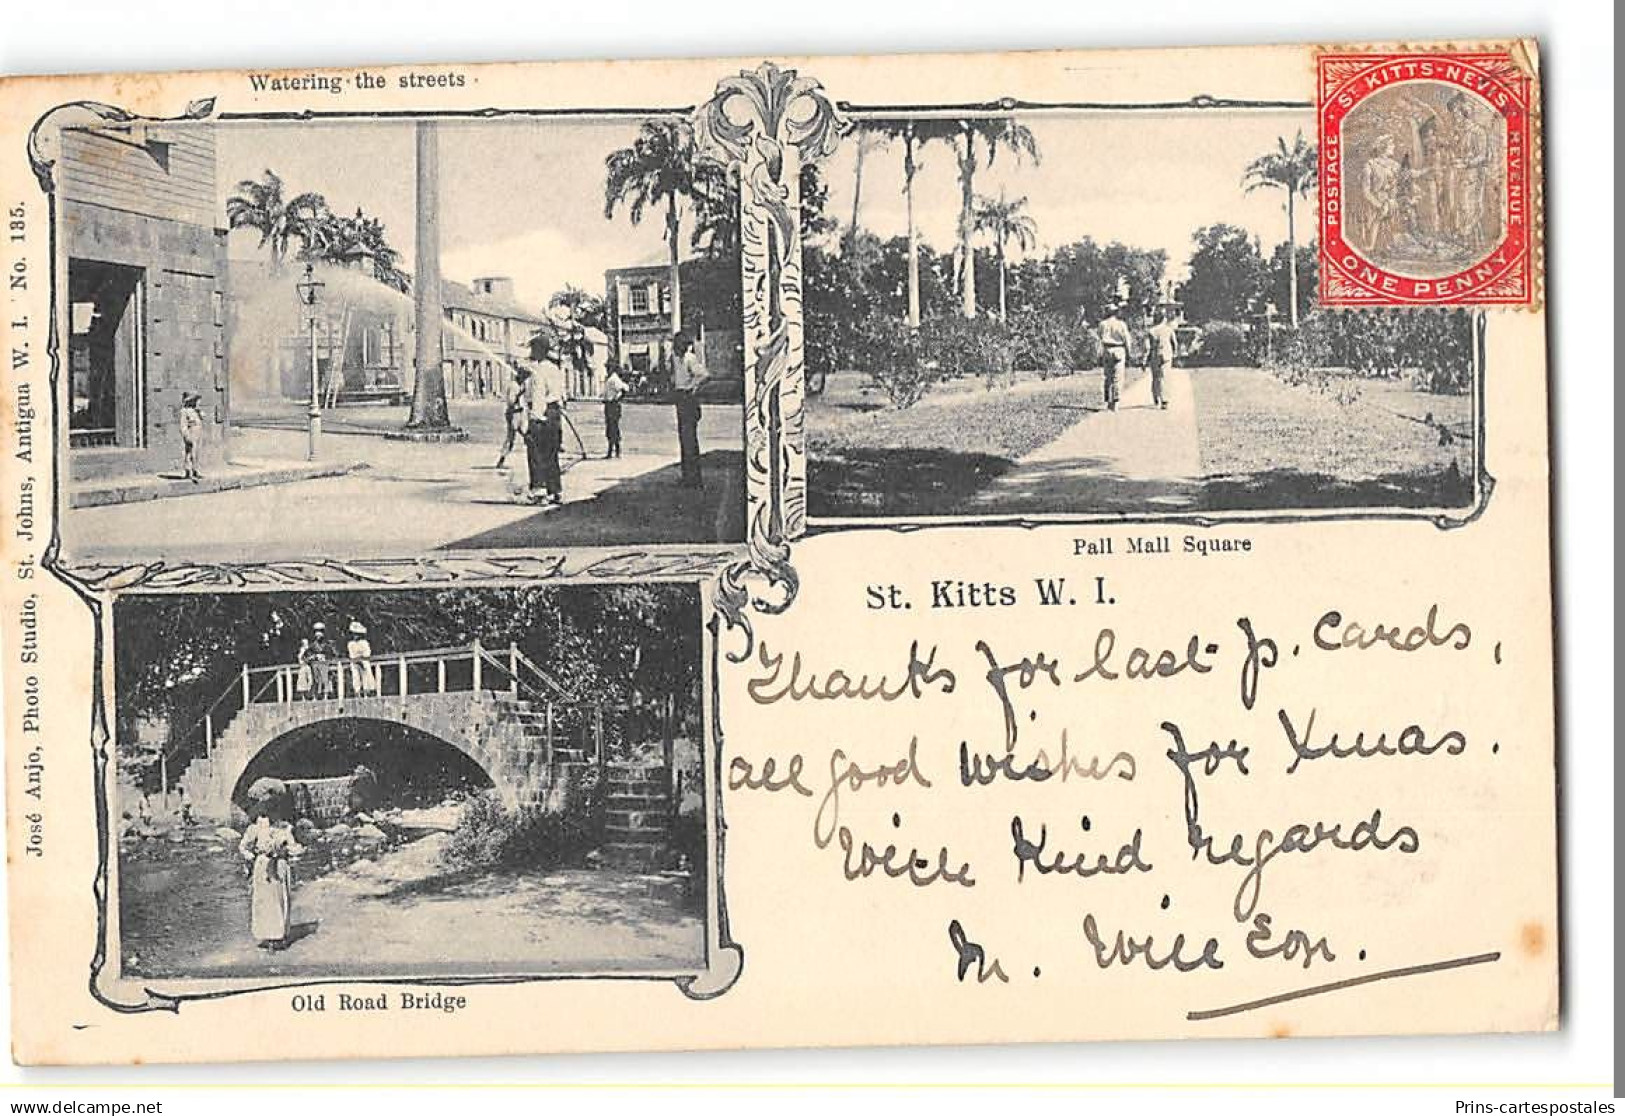 Watering the streets
ST KITTS-NEVIS
POSTAGE
REVENUE
ONE PENNY
José Anjo, Photo Studio, St. Johns, Antigua W. I. No. 135.
Pall Mall Square
St. Kitts W. I.
Thanks for last p. cards,
all good wishes for Xmas.
With kind regards
M.
Old Road Bridge
Prins-cartespostales